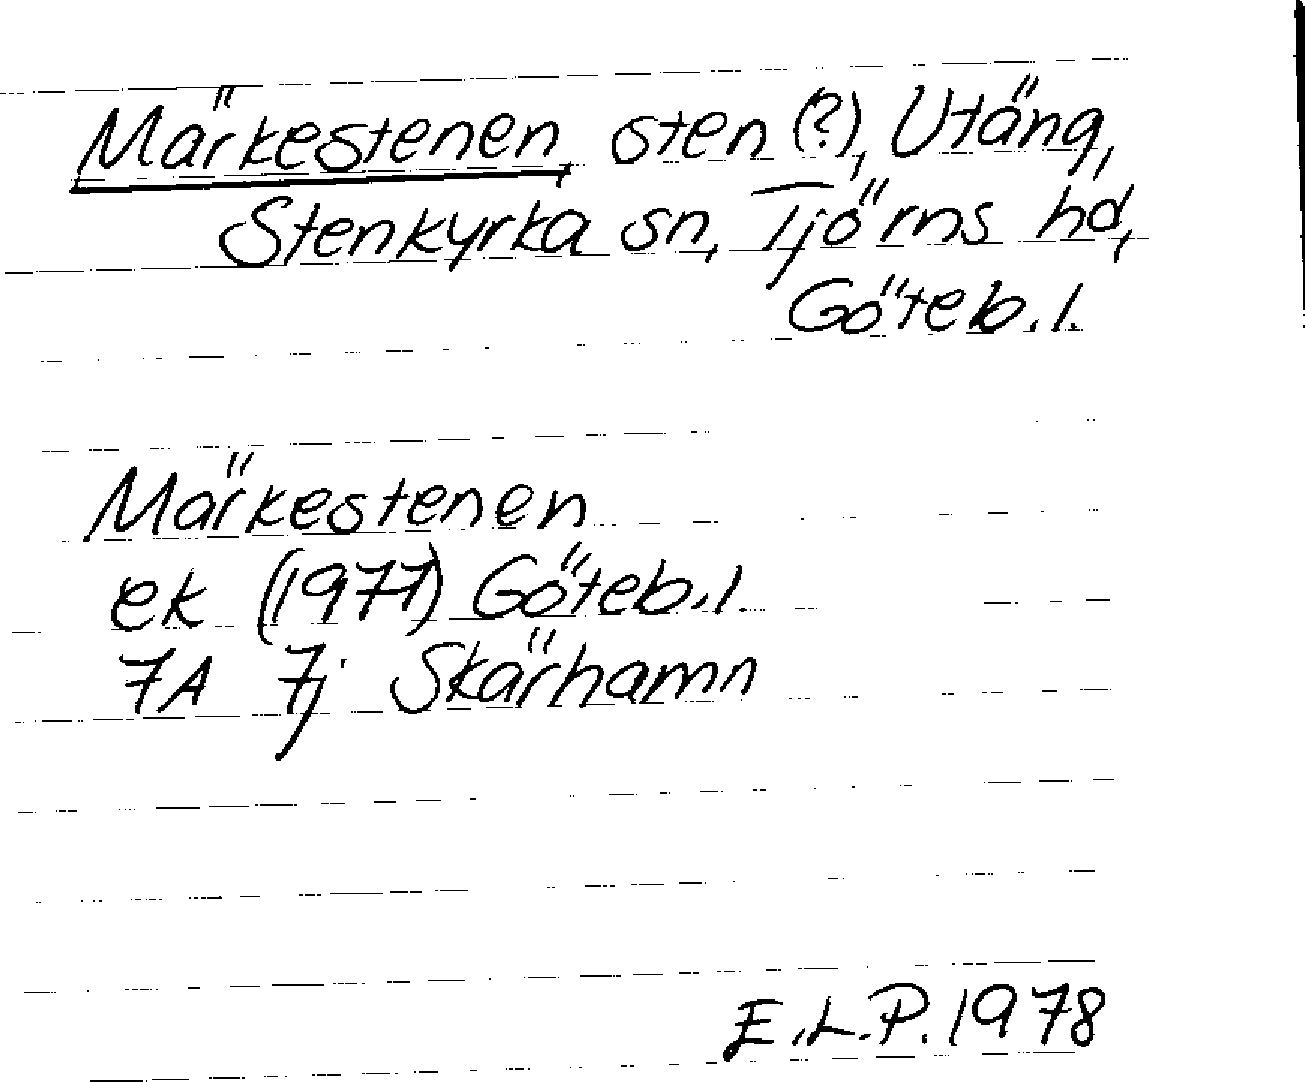 Märkestenen, sten (?), Utäng,
Stenkyrka sn, Tjörns hd,
Göteb. l.
Märkestenen
ek (1977) Göteb. l.
7A 7j Skärhamn
E.L.P. 1978